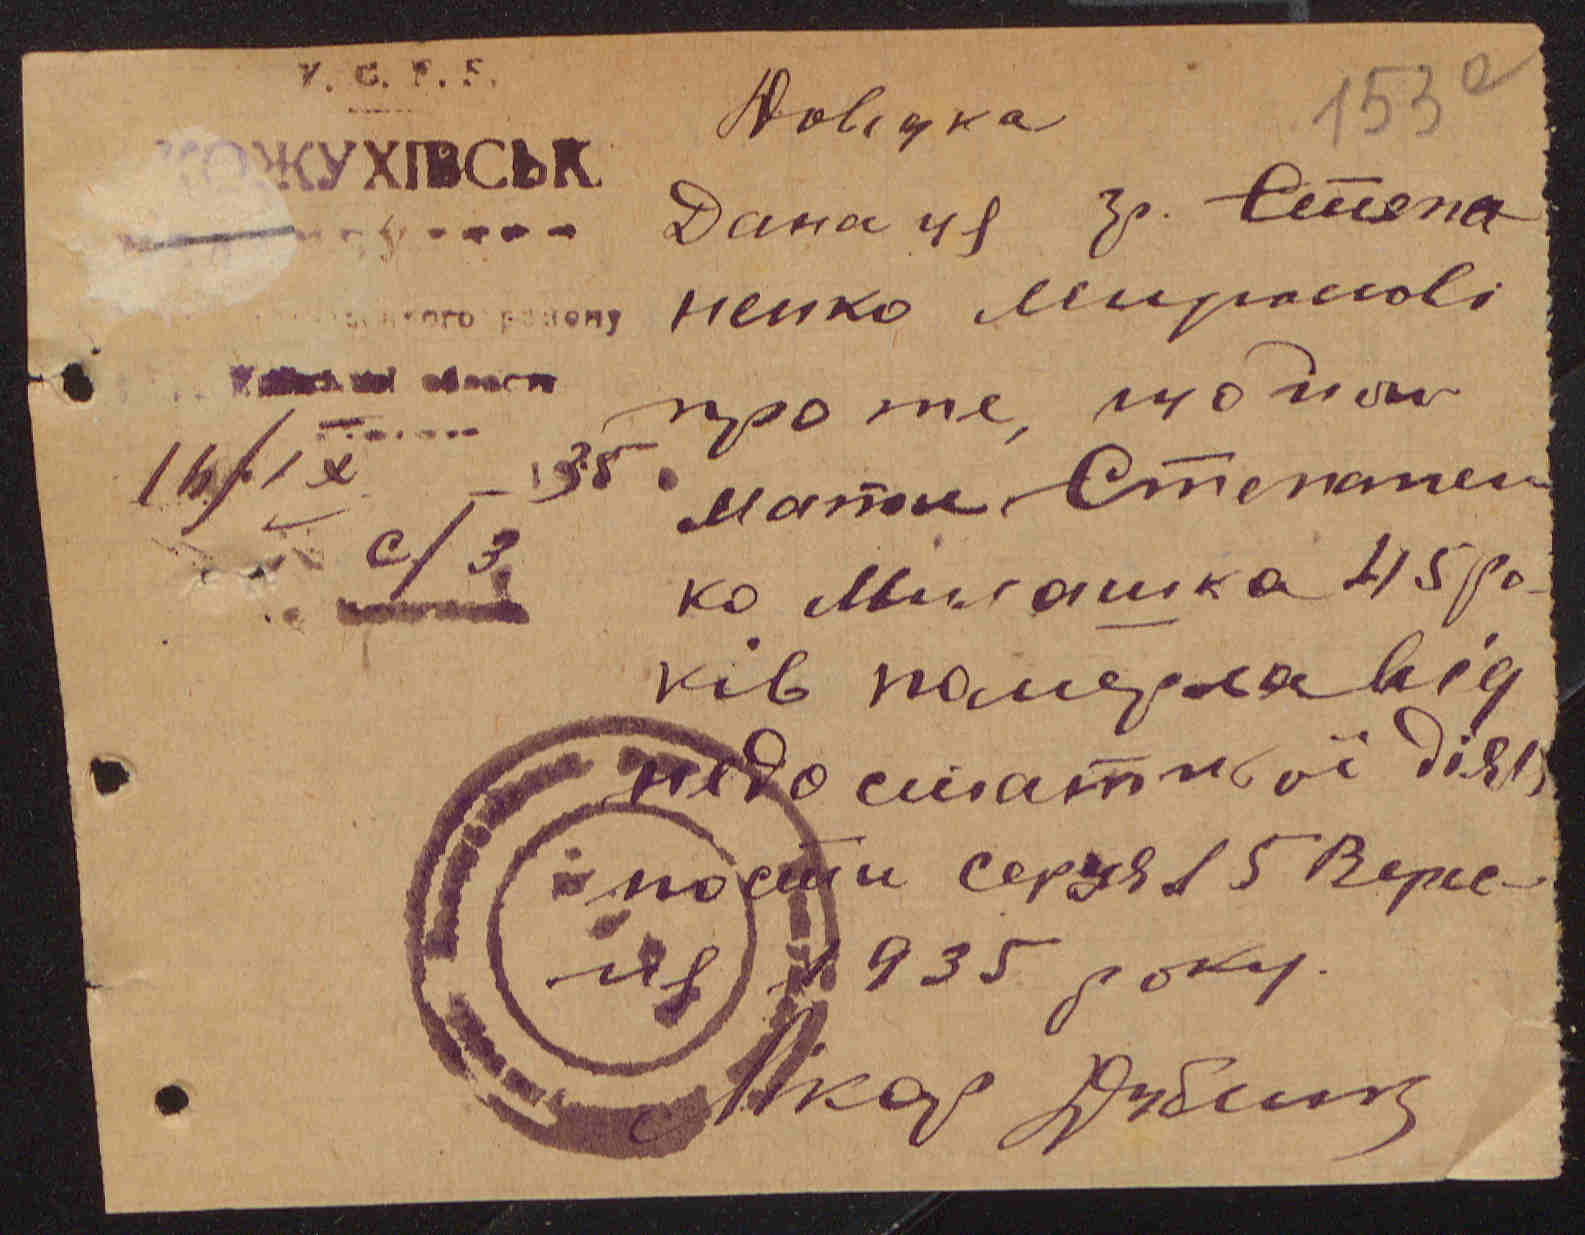 У. С. Р. Р.
КОЖУХІВСЬК
району
області
16/IX 1935
с/3
153а
Довідка
Дана ця гр. Степа
ненко Миронові
про те, що його
мати Степанен
ко Милашка 45 ро-
ків померла від
недостатньої діяль
ности серця 15 Верес
ня 1935 року.
Лікар